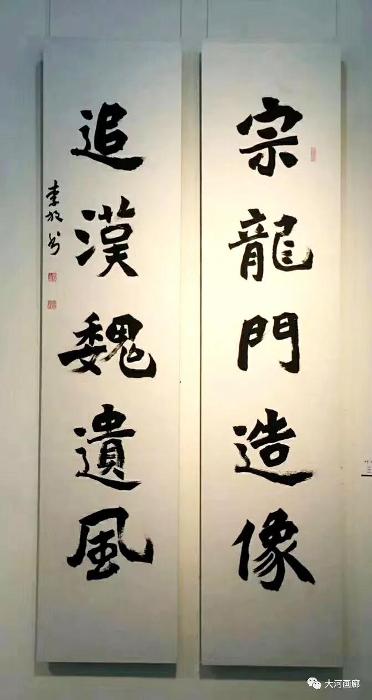 宗龍門造像
追漢魏遺風
大河画廊